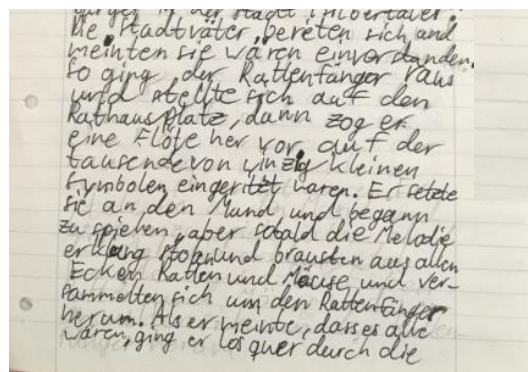 in der Stadt
Die Stadtväter bereten sich und
meinten sie wären einverstanden.
So ging der Rattenfänger raus
und stellte sich auf den
Rathausplatz, dann zog er
eine Flöte her vor, auf der
tausende von winzig kleinen
Symbolen eingeritzt waren. Er setzte
sie an den Mund und begann
zu spielen, aber sobald die Melodie
erklang und brausten aus allen
Ecken Ratten und Mäuse und ver-
sammelten sich um den Rattenfänger
herum. Als er meinte, dass es alle
wären, ging er los quer durch die